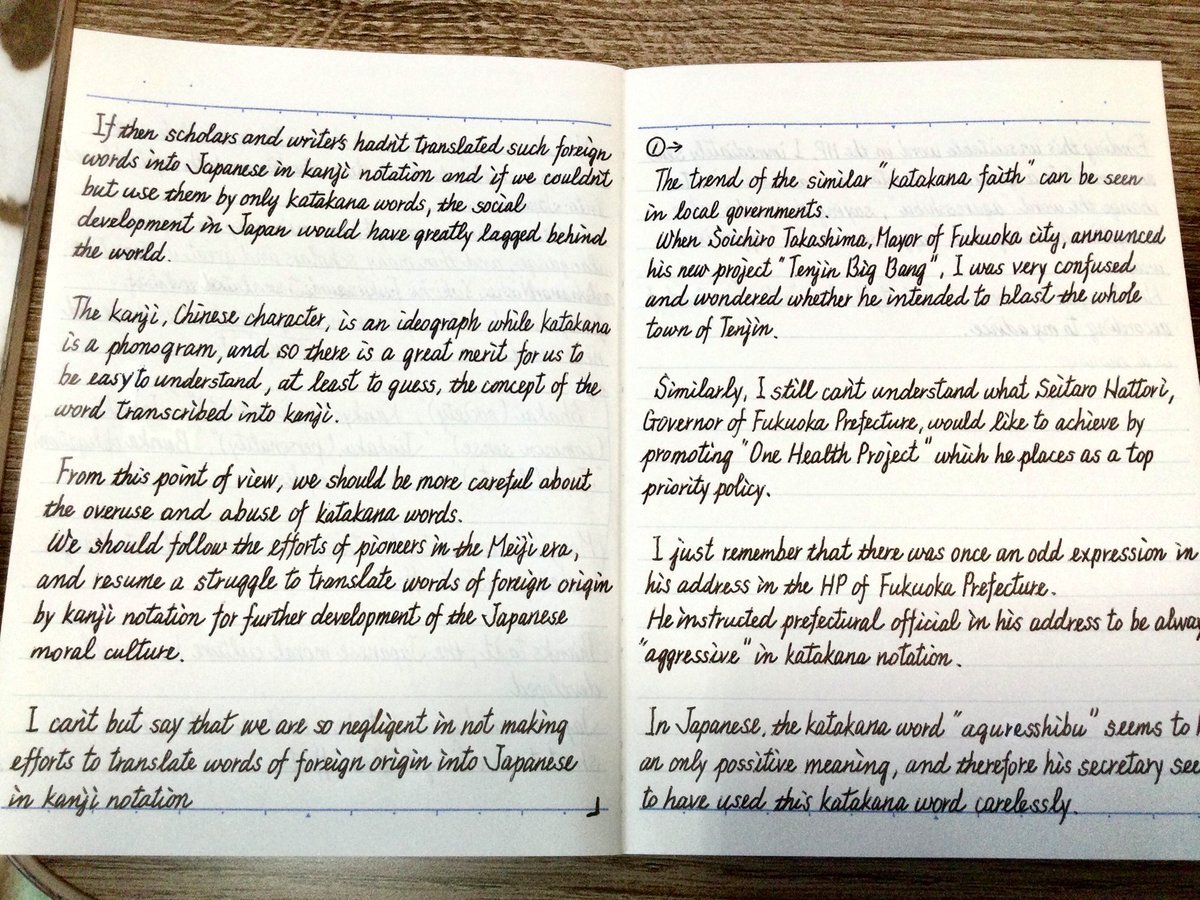 If then scholars and writers hadn't translated such foreign
words into Japanese in kanji notation and if we couldn't
but use them by only katakana words, the social
development in Japan would have greatly lagged behind
the world.
The kanji, Chinese character, is an ideograph while katakana
is a phonogram, and so there is a great merit for us to
be easy to understand, at least to guess, the concept of the
word transcribed into kanji.
From this point of view, we should be more careful about
the overuse and abuse of katakana words.
We should follow the efforts of pioneers in the Meiji era,
and resume a struggle to translate words of foreign origin
by kanji notation for further development of the Japanese
moral culture.
I can't but say that we are so negligent in not making
efforts to translate words of foreign origin into Japanese
in kanji notation 」
①→
The trend of the similar "katakana faith" can be seen
in local governments.
When Soichiro Takashima, Mayor of Fukuoka city, announced
his new project "Tenjin Big Bang", I was very confused
and wondered whether he intended to blast the whole
town of Tenjin.
Similarly, I still can't understand what Seitaro Hattori,
Governor of Fukuoka Prefecture, would like to achieve by
promoting "One Health Project" which he places as a top
priority policy.
I just remember that there was once an odd expression in
his address in the HP of Fukuoka Prefecture.
He instructed prefectural official in his address to be
"aggressive" in katakana notation.
In Japanese, the katakana word "aguresshibu" seems to
an only possitive meaning, and therefore his secretary
to have used this katakana word carelessly.